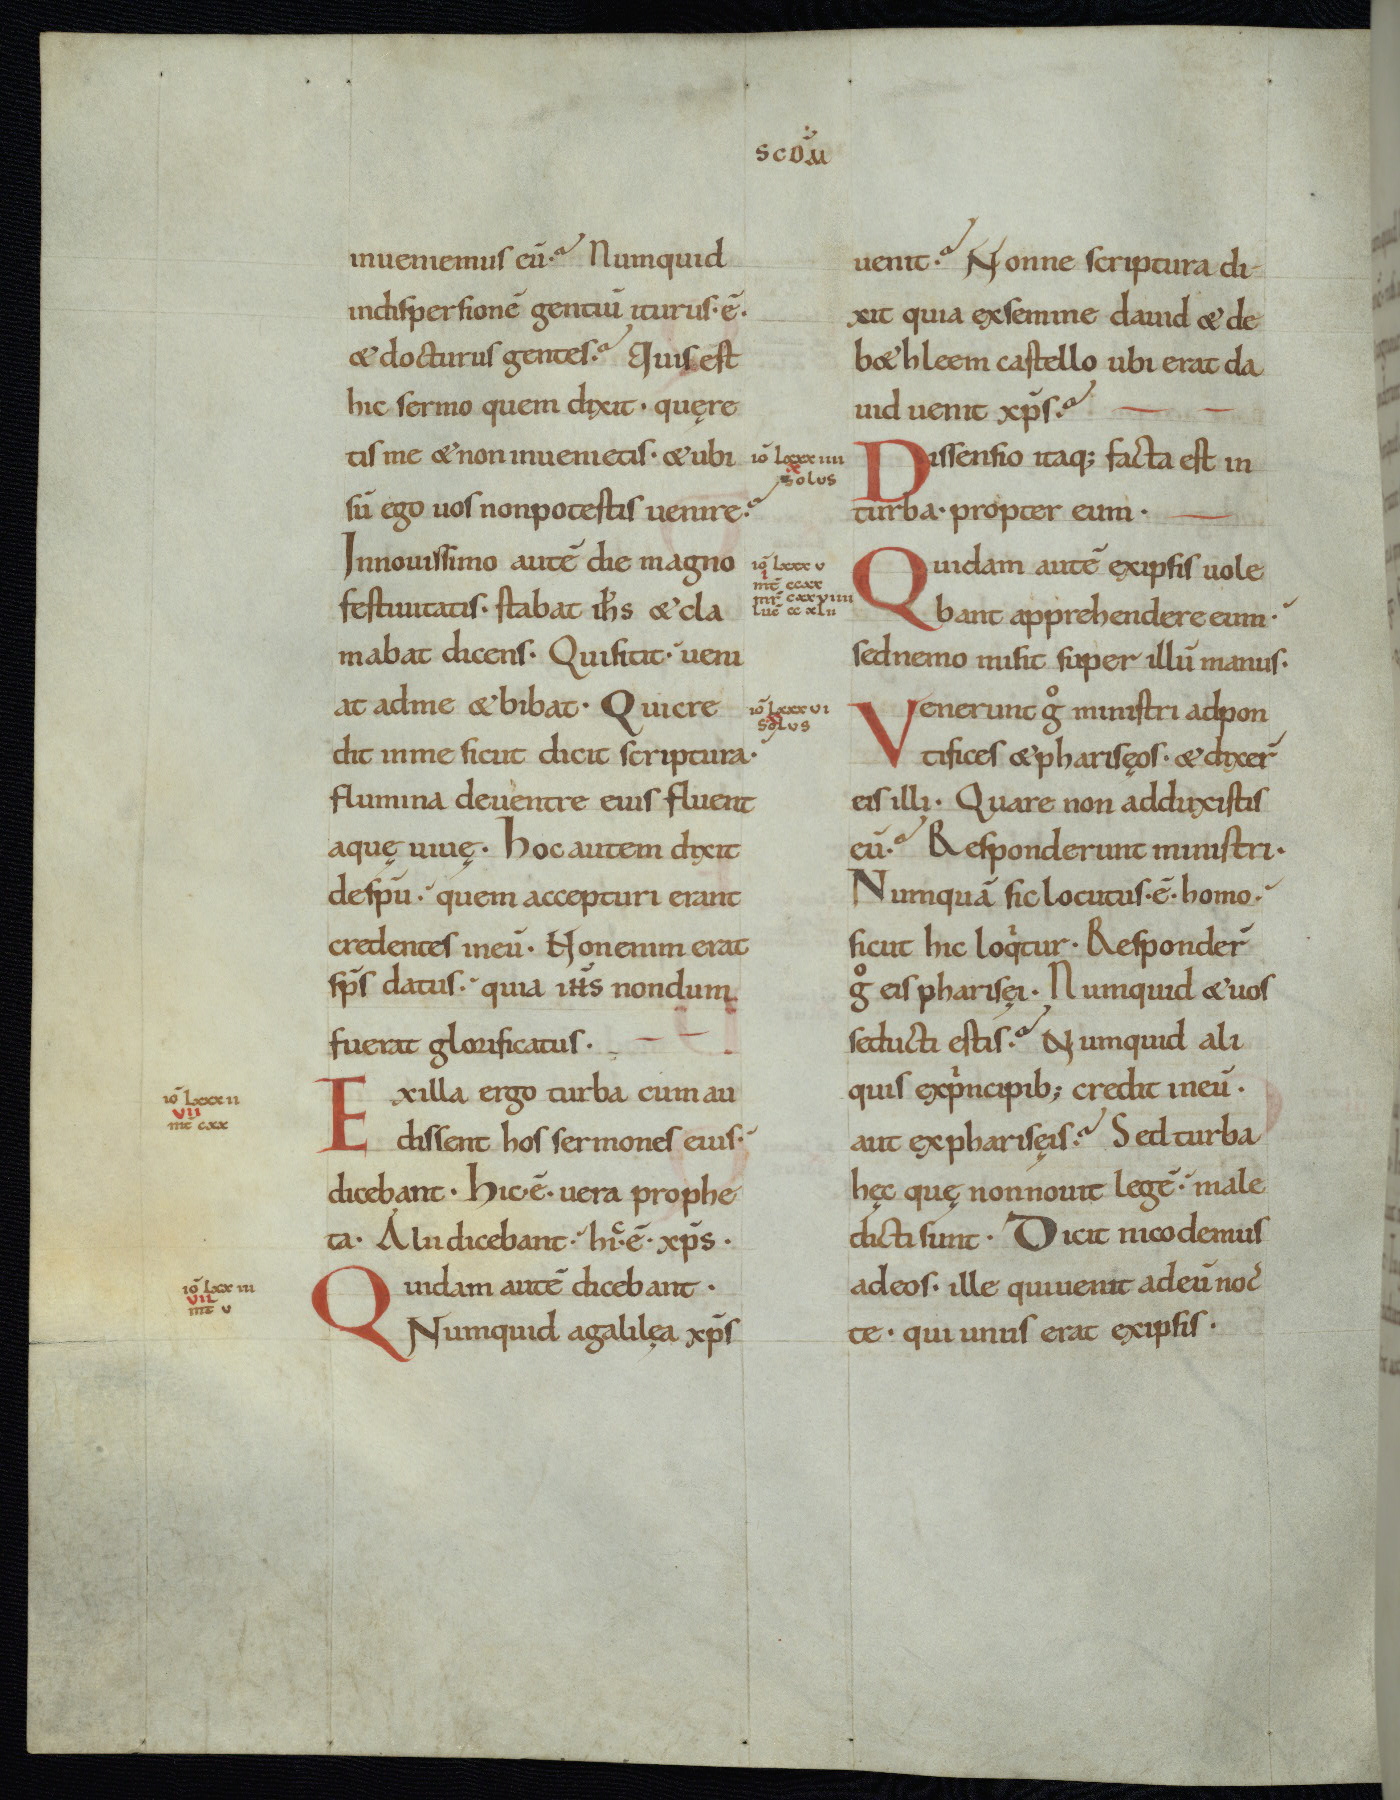 scđm
inueniemus eū. Numquid
indispersionē gentiū iturus·ē·
& docturus gentes. Quis est
hic sermo quem dixit· quęre
tis me & non inuenietis· & ubi
sū ego uos non potestis uenire.
Innouissimo autē die magno
festiuitatis· stabat ihs & cla
mabat dicens· Qui sitit· ueni
at ad me & bibat· Qui cre
dit in me sicut dicit scriptura·
flumina de uentre eius fluent
aquę uiuę· Hoc autem dixit
de spū· quem accepturi erant
credentes in eū· Non enim erat
sp̄s datus· quia ihs nondum
fuerat glorificatus·
iō lxxxii
vii
mt̄ cxx
Ex illa ergo turba cum au
dissent hos sermones eius·
dicebant· Hic·ē· uera prophe
ta· Alii dicebant· hic·ē· xp̄s·
iō lxxxiii
vii
mt̄ v
Quidam autē dicebant·
Numquid a galilęa xp̄s
uenit· Nonne scriptura di
xit quia ex semine dauid & de
b&hleem castello ubi erat da
uid uenit xp̄s·
iō lxxxiiii
x
solus
Dissensio itaq; facta est in
turba· propter eum·
iō lxxxv
i
mt̄ ccxx
mr̄ cxxviiii
luc̄ ccxlii
Quidam autē ex ipsis uole
bant apprehendere eum·
sed nemo misit super illū manus·
iō lxxxvi
x
solus
Venerunt g̊ ministri ad pon
tifices & pharisęos· & dixer̄
eis illi· Quare non adduxistis
eū· Responderunt ministri·
Numquā sic locutus·ē· homo·
sicut hic loqitur· Responder̄
g̊ eis pharisęi· Numquid & uos
seducti estis· Numquid ali
quis ex pincipib; credit in eū·
aut ex pharisęis· Sed turba
hęc quę non nouit legē· male
dicti sunt· Dicit nicodemus
ad eos· ille qui uenit ad eū noc
te· qui unus erat ex ipsis·